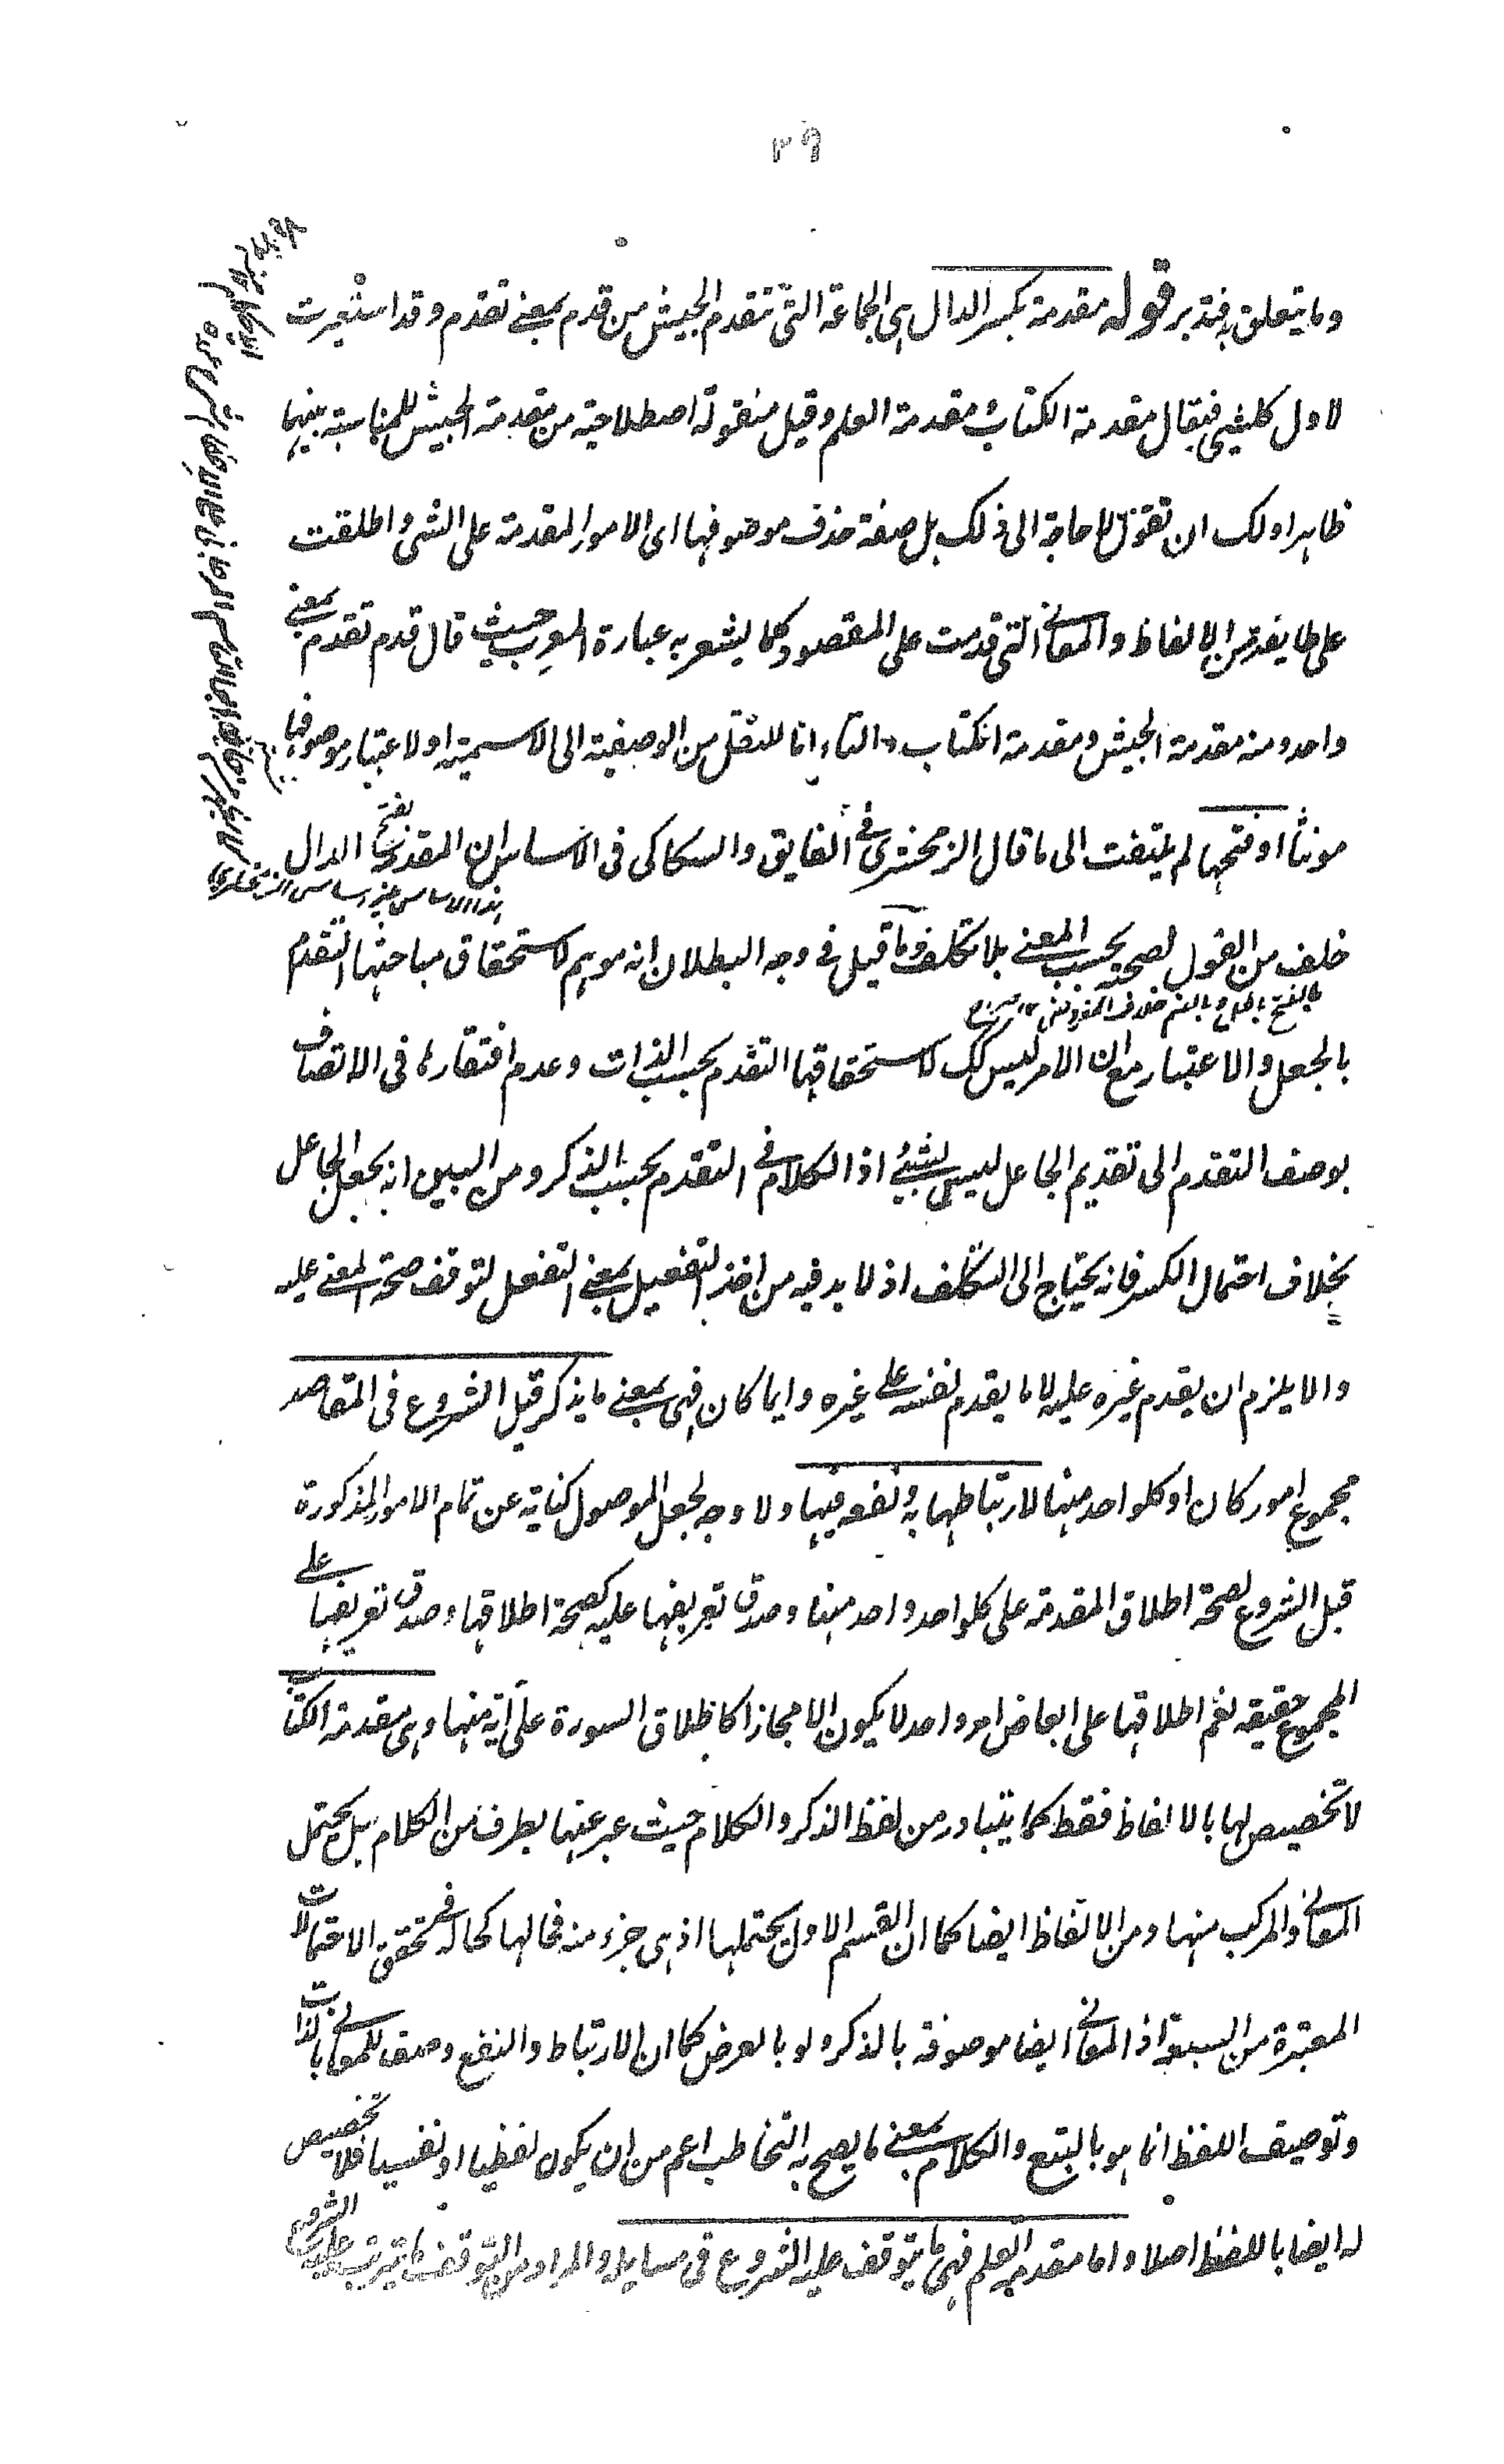 ٣٩
وما يتعلق به فتدبر قوله مقدمة بكسر الدال هى الجماعة التى تتقدم الجيش من قدم بمعنے تقدم وقد استعيرت
لاول كل شئ فيقال مقدمة الكتاب ومقدمة العلم وقيل منقولة اصطلاحية من مقدمة الجيش للمناسبة بينهما
ظاهرا ولك ان تقول لا حاجة الى ذلك بل صفة حذف موصوفها اى الامور المقدمة على الشئ واطلقت
على طايفة من الالفاظ والمعانے التى قدمت على المقصود كما يشعر به عبارة المغرب حيث قال قدم تقدم بمعنے
واحد ومنه مقدمة الجيش ومقدمة الكتاب والتاء اما للنقل من الوصفية الى الاسمية او لاعتبار موصوفها
مونثا او فتحها لم يلتفت الى ما قال الزمخشرى فے الفايق والسكاكى فى الاساس ان المقدمة بفتح الدال
هذا الاساس غير اساس الزمخشرى
خلف من القول لصحته بحسب المعنے بلا تكلف وما قيل فے وجه البطلان انه موهم لاستحقاق مباحثها التقدم
بالجعل والاعتبار مع ان الامر ليس كك لاستحقاقها التقدم بحسب الذات وعدم افتقارها فى الاتصاف
بوصف التقدم الى تقديم الجاعل ليس بشئ اذ الكلام فے التقدم بحسب الذكر ومن البين انه بجعل الجاعل
بخلاف احتمال الكسر فانه يحتاج الى التكلف اذ لا بد فيه من اخذ التفعيل بمعنے التفعل لتوقف صحة المعنے عليه
والا يلزم ان يقدم غيره عليه لا ما يقدم نفسه علے غيره وايا كان فهى بمعنے ما يذكر قبل الشروع فى المقاصد
مجموع امور كان او كلواحد منها لارتباطها به ونفعه فيها ولا وجه لجعل الموصول كناية عن تمام الامور المذكورة
قبل الشروع لصحة اطلاق المقدمة على كلواحد واحد منها وصدق تعريفها عليه كصحة اطلاقها وصدق تعريفها علے
المجموع حقيقة نعم اطلاقها على ابعاض امر واحد لا يكون الا مجازا كاطلاق السورة على آية منها وهى مقدمة الكتاب
لا تخصيص لها بالالفاظ فقط كما يتبادر من لفظ الذكر والكلام حيث عبر عنها بطرف من الكلام بل يحتمل
المعانے والمركب منها ومن الالفاظ ايضا كما ان القسم الاول يحتملها اذ هى جزء منه فحالها كحاله فے تحقق الاحتمالات
المعتبرة من السبعة اذ المعانے ايضا موصوفة بالذكر ولو بالعرض كما ان الارتباط والنفع وصف للمعانے بالذات
وتوصيف اللفظ انما هو بالتبع والكلام بمعنے ما يصح به التخاطب اعم من ان يكون لفظيا او نفسيا فلا تخصيص
له ايضا باللفظ اصلا واما مقدمة العلم فهى ما يتوقف عليه الشروع فى مسايله والمراد من التوقف ما يترتب عليه الشروع